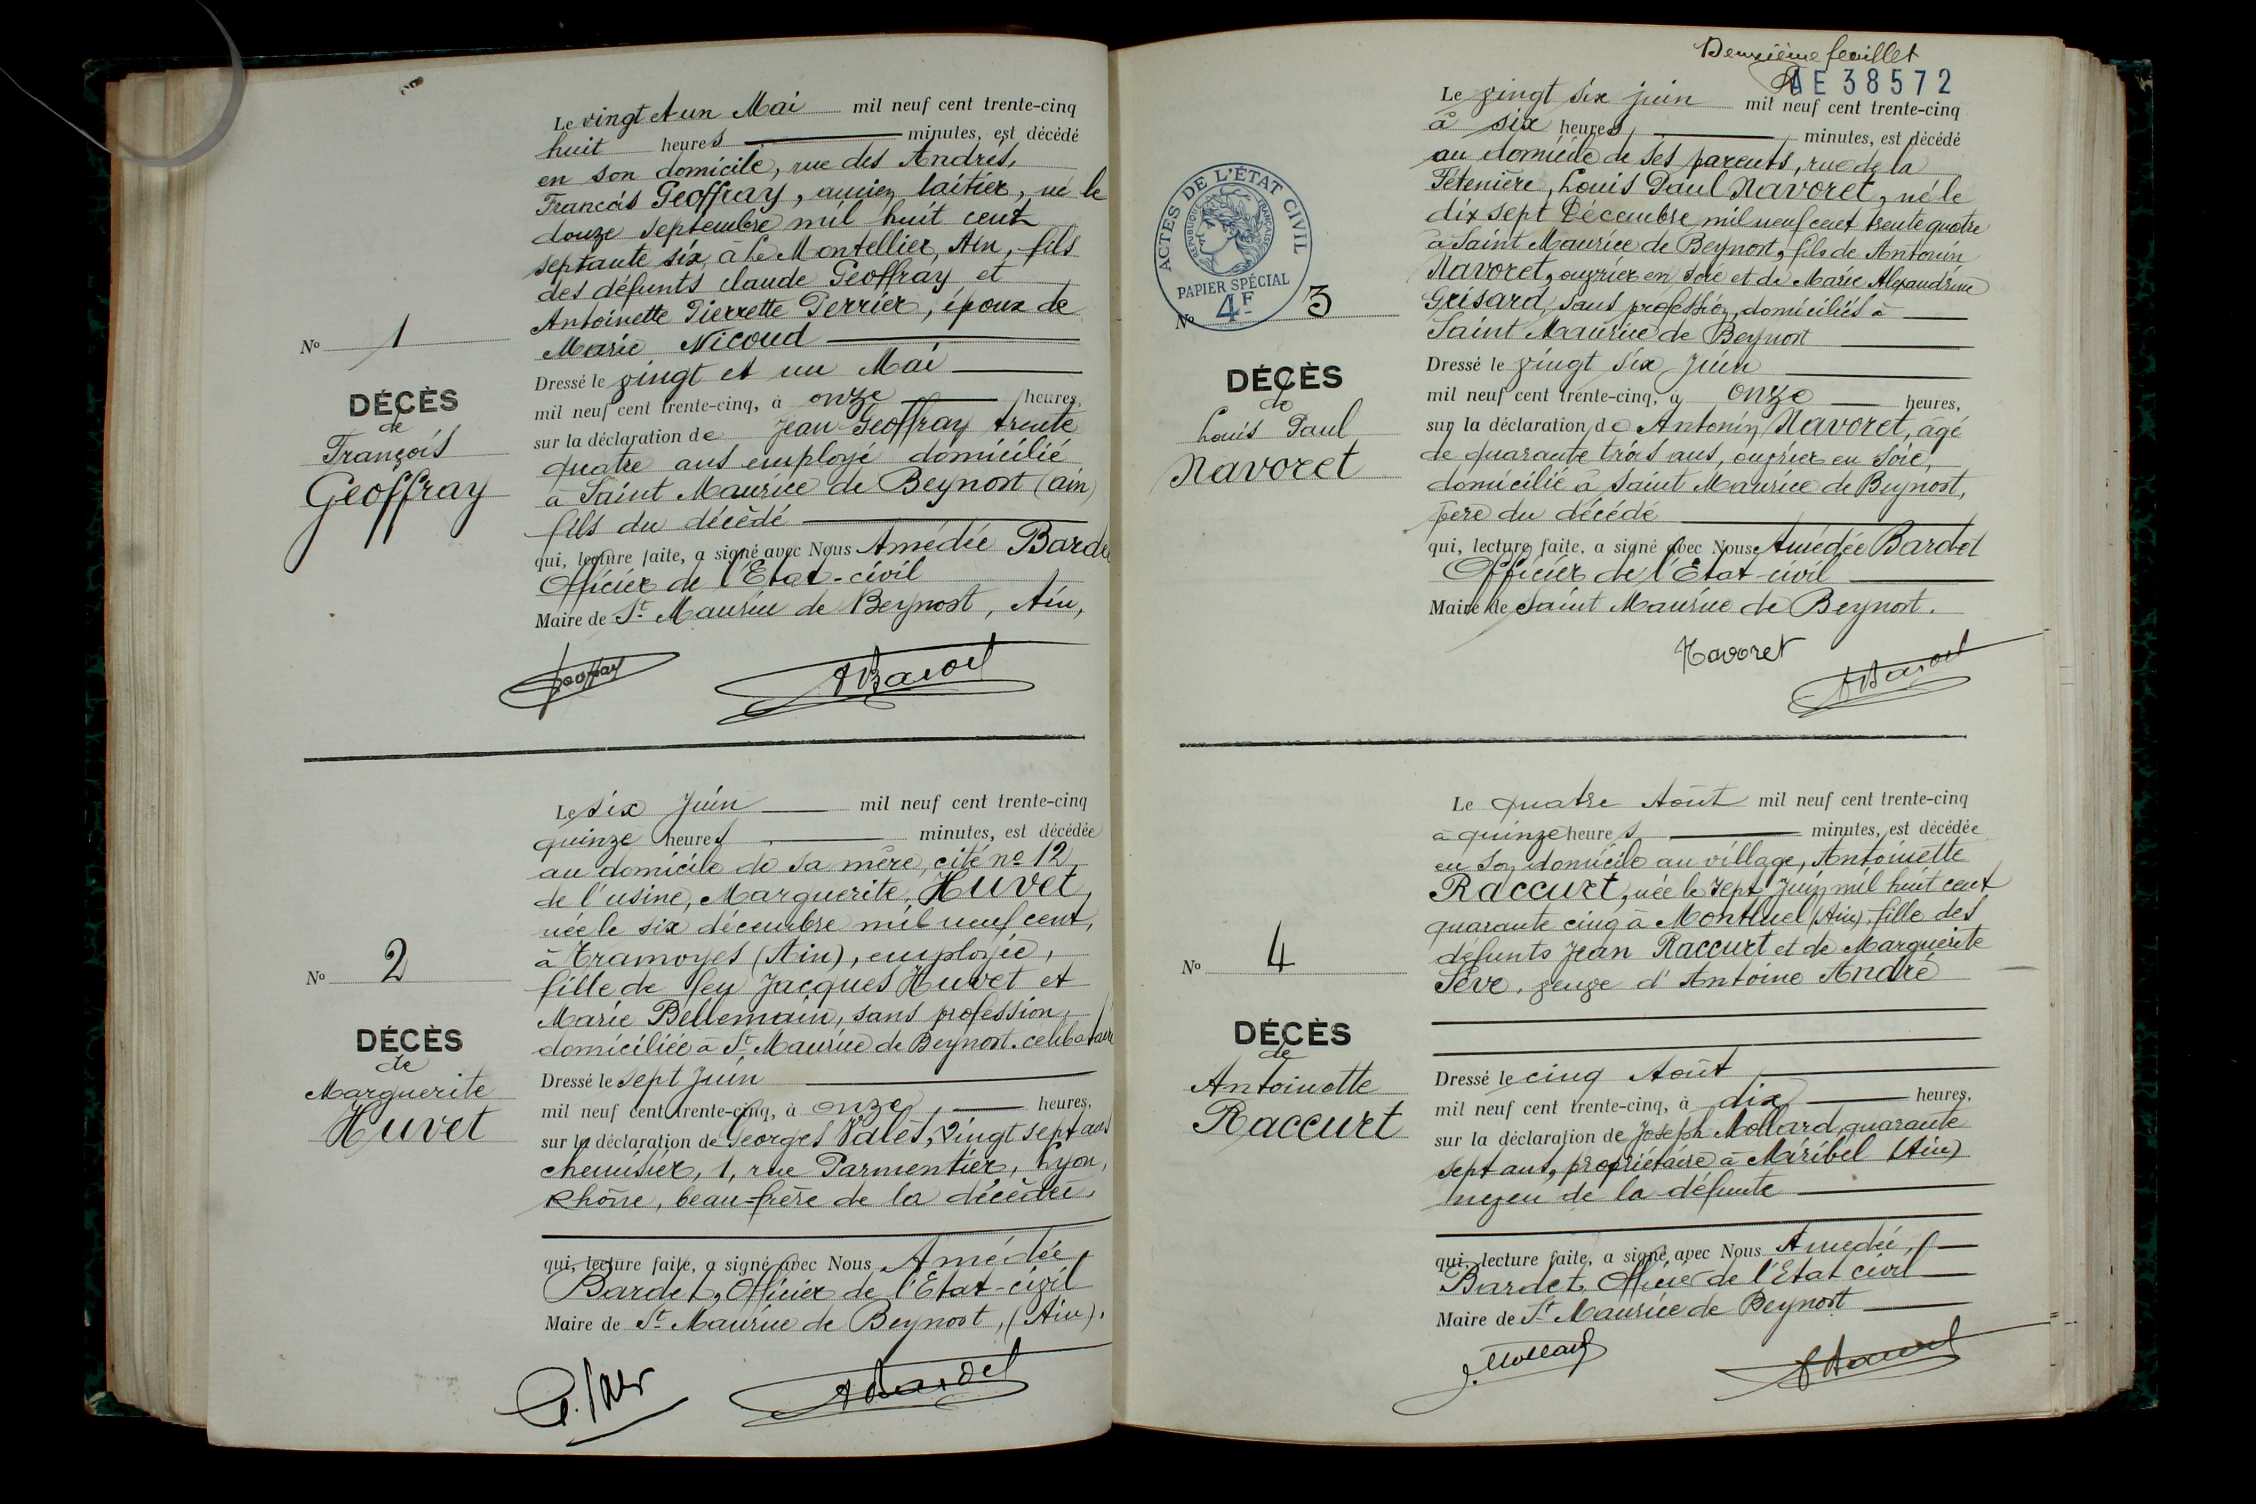 Le vingt et un Mai mil neuf cent trente-cinq
huit heures minutes, est décédé
en son domicile, rue des Andrés,
François Geoffray, ancien laitier, né le
douze septembre mil huit cent
septante six, à Le Montellier, Ain, fils
des défunts Claude Geoffray et
Antoinette Pierrette Perrier, époux de
Marie Nicoud
No 1
DÉCÈS
de
François
Geoffray
Dressé le vingt et un Mai
mil neuf cent trente-cinq, à onze heures,
sur la déclaration de Jean Geoffray trente
quatre ans employé domicilié
à Saint Maurice de Beynost (ain)
fils du décédé
qui, lecture faite, a signé avec Nous Amédée Bardet
Officier de l'Etat-civil
Maire de St Maurice de Beynost, Ain,
Geoffray ABardet
Le six Juin mil neuf cent trente-cinq
quinze heures minutes, est décédée
au domicile de sa mère, cité no 12
de l'usine, Marguerite Huvet,
née le six décembre mil neuf cent,
à Tramoyes (Ain), employée,
fille de feu Jacques Huvet et
Marie Bellemain, sans profession,
domiciliée à St Maurice de Beynost. célibataire
No 2
DÉCÈS
de
Marguerite
Huvet
Dressé le sept Juin
mil neuf cent trente-cinq, à onze heures,
sur la déclaration de Georges Valès, vingt sept ans
chemisier, 1, rue Parmentier, Lyon,
Rhône, beau-frère de la décédée,
qui, lecture faite, a signé avec Nous Amédée
Bardet, Officier de l'Etat-civil
Maire de St Maurice de Beynost, (Ain).
ABardet
Deuxième feuillet
AE 38572
Le vingt six juin mil neuf cent trente-cinq
à six heures minutes, est décédé
au domicile de ses parents, rue de la
Louis Paul Navoret, né le
dix sept Décembre mil neuf cent trente quatre
à Saint Maurice de Beynost, fils de Antonin
Navoret, ouvrier en soie et de Marie Alexandrine
Grisard, sans profession, domiciliés à
Saint Maurice de Beynost
ACTES DE L'ÉTAT CIVIL
RÉPUBLIQUE FRANÇAISE
PAPIER SPÉCIAL
4F
No 3
DÉCÈS
de
Louis Paul
Navoret
Dressé le vingt six Juin
mil neuf cent trente-cinq, à onze heures,
sur la déclaration de Antonin Navoret, âgé
de quarante trois ans, ouvrier en soie,
domicilié à Saint Maurice de Beynost,
père du décédé
qui, lecture faite, a signé avec Nous Amédée Bardet
Officier de l'Etat-civil
Maire de Saint Maurice de Beynost.
Navoret
ABardet
Le quatre Août mil neuf cent trente-cinq
à quinze heures minutes, est décédée
en son domicile au village, Antoinette
Raccurt, née le sept Juin mil huit cent
quarante cinq à Montluel (Ain) fille des
défunts Jean Raccurt et de Marguerite
Sève, veuve d'Antoine André
No 4
DÉCÈS
de
Antoinette
Raccurt
Dressé le cinq Août
mil neuf cent trente-cinq, à dix heures,
sur la déclaration de Joseph Mollard, quarante
sept ans, propriétaire à Miribel (Ain)
neveu de la défunte
qui, lecture faite, a signé avec Nous Amédée
Bardet, Officier de l'Etat civil
Maire de St Maurice de Beynost
J. Mollard ABardet